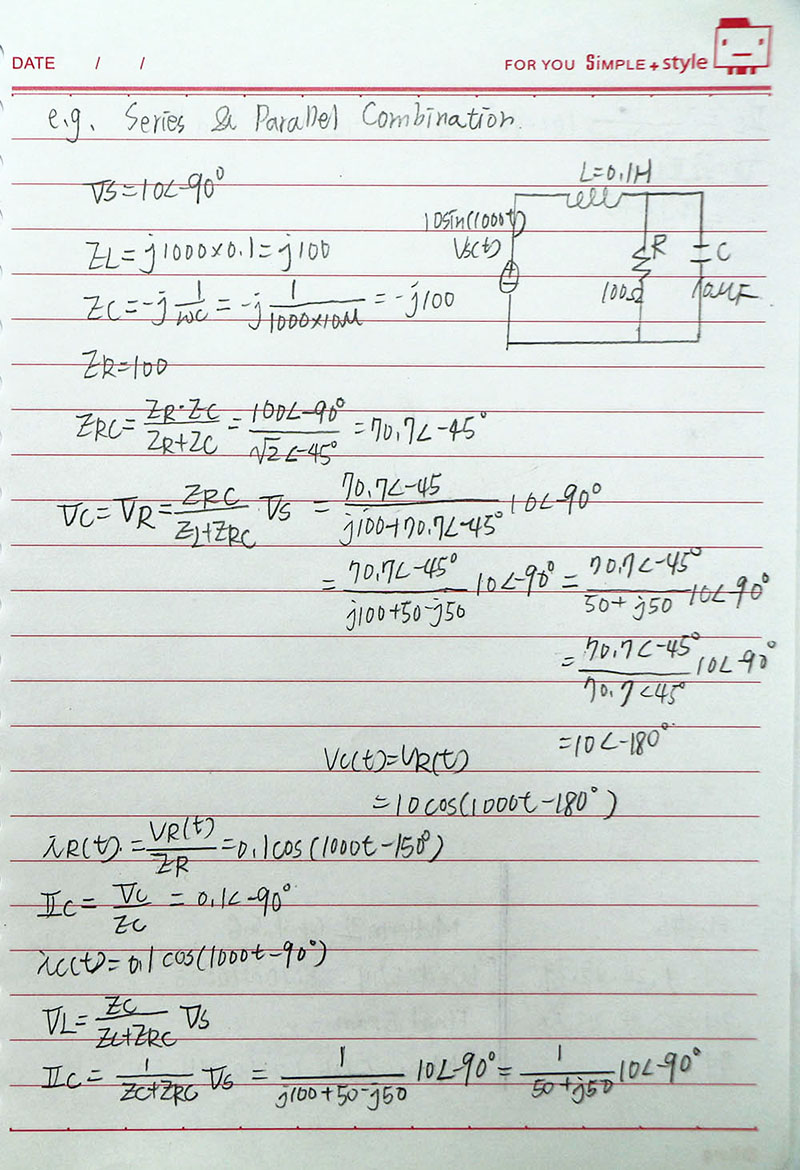 DATE / /
FOR YOU SiMPLE + style
e.g. Series & Parallel Combination.
L=0.1H
10sin(1000t)
Vs(t)
R
100Ω
C
10μF
𝕍s=10∠-90°
ZL=j1000×0.1=j100
ZC=-j 1/ωC = -j 1/1000×10μ = -j100
ZR=100
ZRC= ZR·ZC/ZR+ZC = 100∠-90°/√2∠-45° = 70.7∠-45°
𝕍C=𝕍R= ZRC/ZL+ZRC 𝕍s = 70.7∠-45/j100+70.7∠-45° 10∠-90°
= 70.7∠-45°/j100+50-j50 10∠-90° = 70.7∠-45°/50+j50 10∠-90°
= 70.7∠-45°/70.7∠45° 10∠-90°
=10∠-180°
Vc(t)=VR(t)
=10cos(1000t-180°)
iR(t)= VR(t)/ZR =0.1cos(1000t-150°)
𝕀C= 𝕍C/ZC = 0.1∠-90°
iC(t)=0.1cos(1000t-90°)
𝕍L= ZC/ZL+ZRC 𝕍s
𝕀C= 1/ZC+ZRC 𝕍s = 1/j100+50-j50 10∠-90°= 1/50+j50 10∠-90°